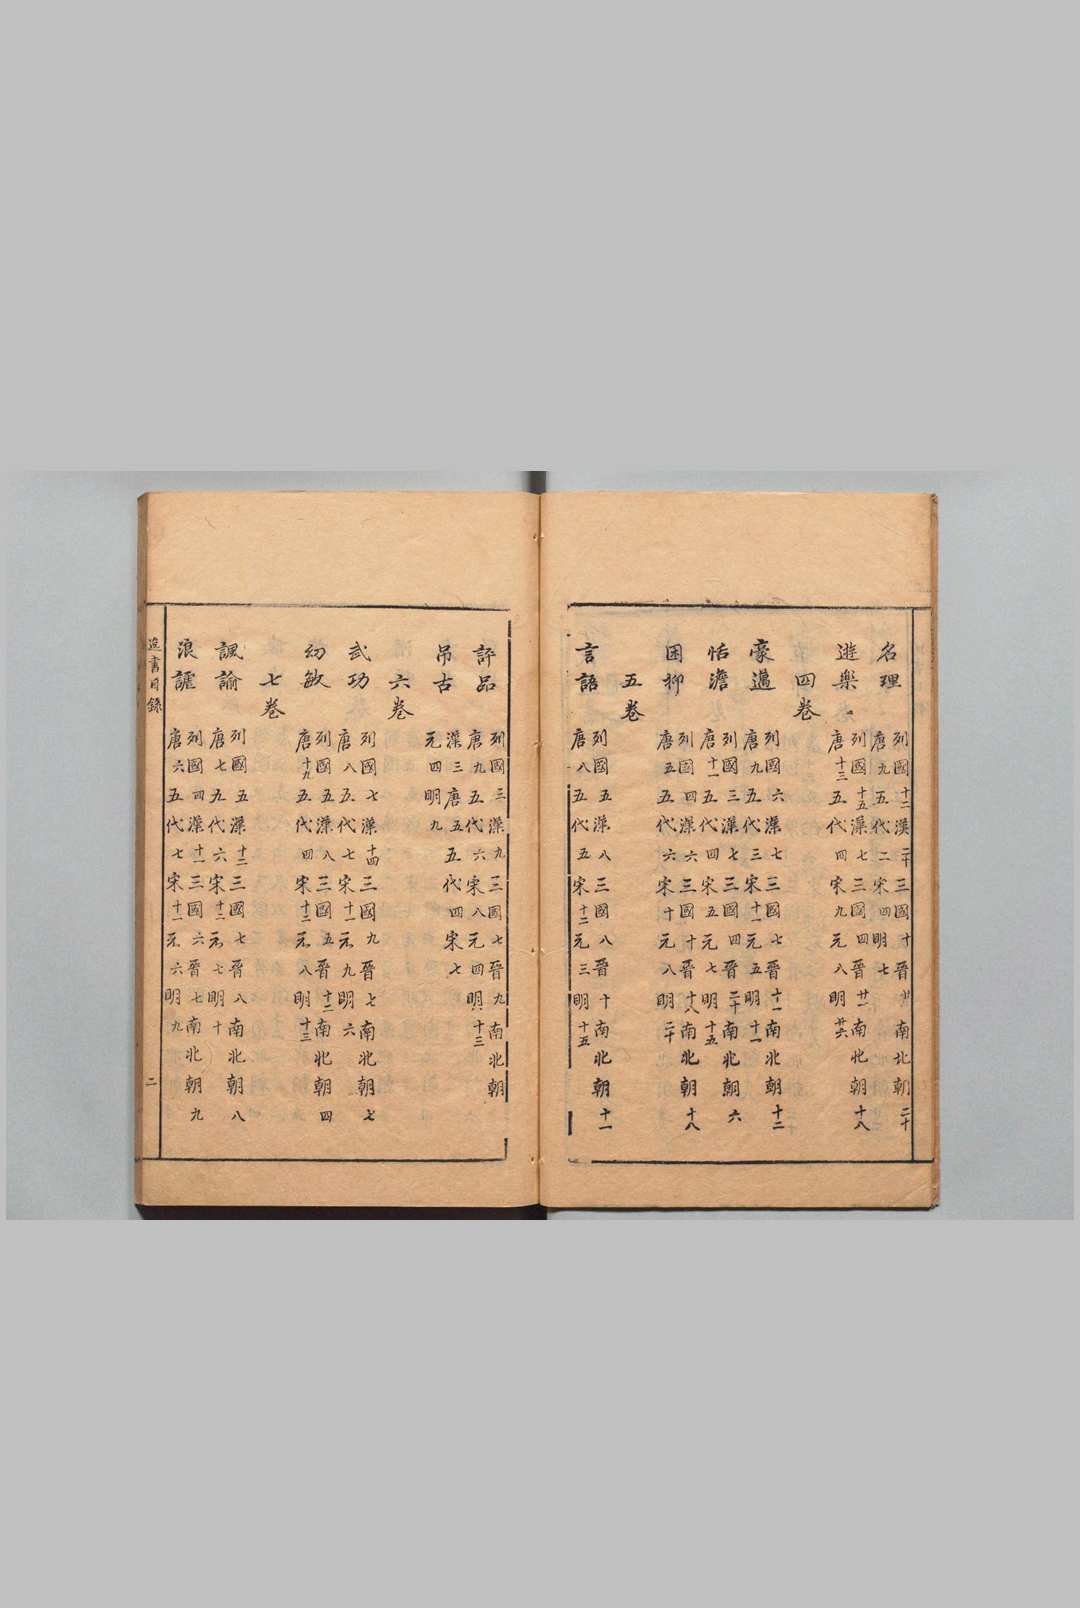 名理
列國十二漢二十三國十晉廿南北朝二十
唐九五代二宋四明七
遊樂
列國十五漢七三國四晉廿一南北朝十八
唐十三五代四宋九元八明廿六
四卷
豪邁
列國六漢七三國七晉十一南北朝十二
唐九五代三宋十一元五明十一
恬澹
列國三漢七三國四晉二十南北朝六
唐十一五代四宋五元七明十五
困抑
列國四漢六三國十晉十八南北朝十八
唐五五代六宋十元八明二十
五卷
言語
列國五漢八三國八晉十南北朝十一
唐八五代五宋十二元三明十五
評品
列國三漢九三國七晉九南北朝
唐九五代六宋八元四明十三
吊古
漢三唐五五代四宋七
元四明九
六卷
武功
列國七漢十四三國九晉七南北朝七
唐八五代七宋十一元九明六
幼敏
列國五漢八三國五晉十二南北朝四
唐十九五代四宋十二元八明十三
七卷
諷諭
列國五漢十二三國七晉八南北朝八
唐七五代六宋十二元七明十
浪謔
列國四漢十一三國六晉七南北朝九
唐六五代七宋十一元六明九
書目錄
二